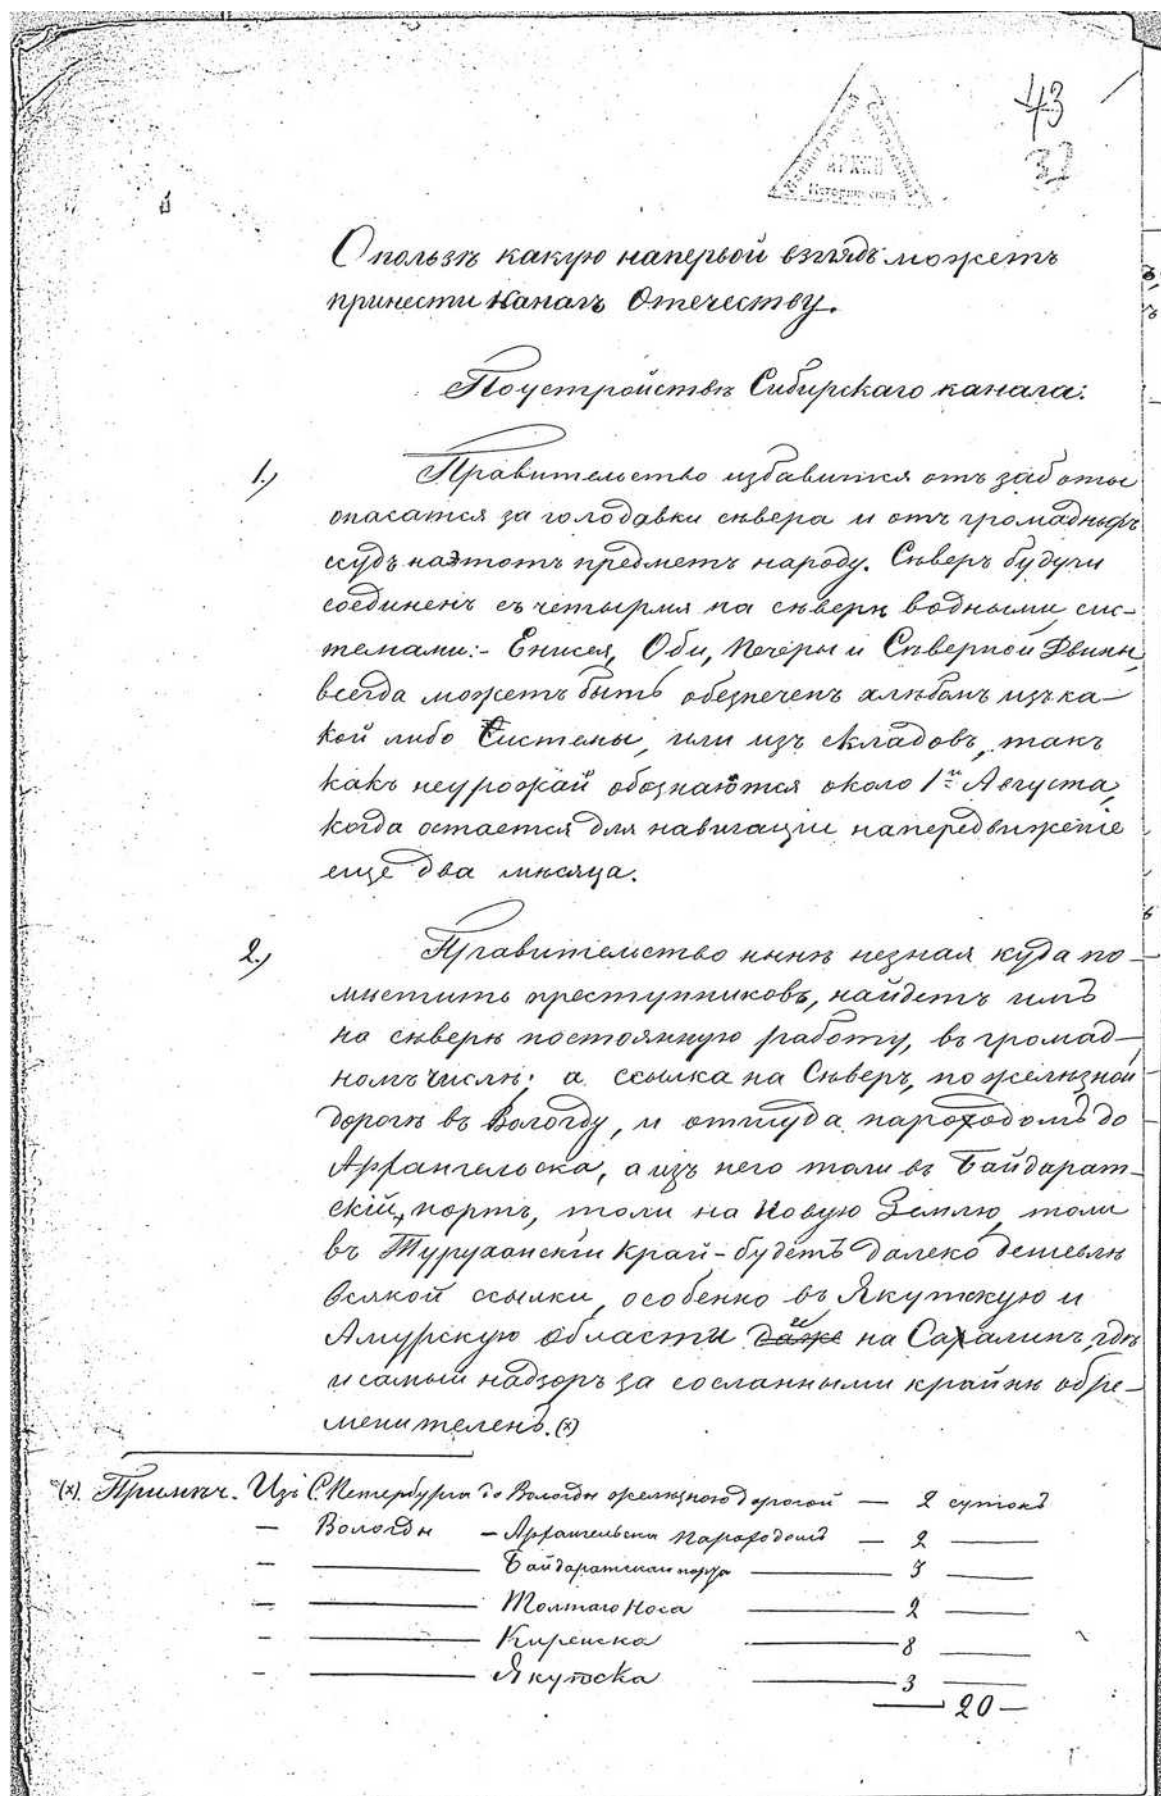 43
32
АРХИВ
О пользѣ какую наперьвой взглядъ можетъ
принести каналъ Отечеству.
Поустройствѣ Сибирскаго канала:
1.) Правительство избавится отъ заботы
опасатся за голодавки сѣвера и отъ громадныхъ
ссудъ наэтотъ предметъ народу. Сѣверъ будучи
соединенъ съ четырмя на сѣверѣ водными сис-
темами:- Енисея, Оби, Печеры и Сѣверной Двины,
всегда можетъ быть обезпеченъ хлѣбомъ изъ ка-
кой либо Системы, или изъ складовъ, такъ
какъ неурожай обознаются около 1го Августа,
когда остается для навигаціи напередвиженіе
еще два мѣсяца.
2.) Правительство нынѣ незная куда по-
мѣстить преступниковъ, найдетъ имъ
на сѣверѣ постоянную работу, въ громад-
номъ числѣ; а ссылка на Сѣверъ, по желѣзной
дорогѣ въ Вологду, и оттуда пароходомъ до
Архангельска, а изъ него толи въ Байдарат-
скій портъ, толи на Новую Землю, толи
въ Туруханскій край - будетъ далеко дешевлѣ
всякой ссылки, особенно въ Якутскую и
Амурскую области даже и на Сахалинъ, гдѣ
и самый надзоръ за сосланными крайнѣ обре-
менителенъ. (х)
(х). Примѣч. Изъ С. Петербурга до Вологды желѣзною дорогой — 2 сутокъ
— Вологды — Архангельска Пароходомъ — 2 —
— — Байдаратскаго порта — 3 —
— — Толтаго Носа — 2 —
— — Киренска — 8 —
— — Якутска — 3 —
— 20 —